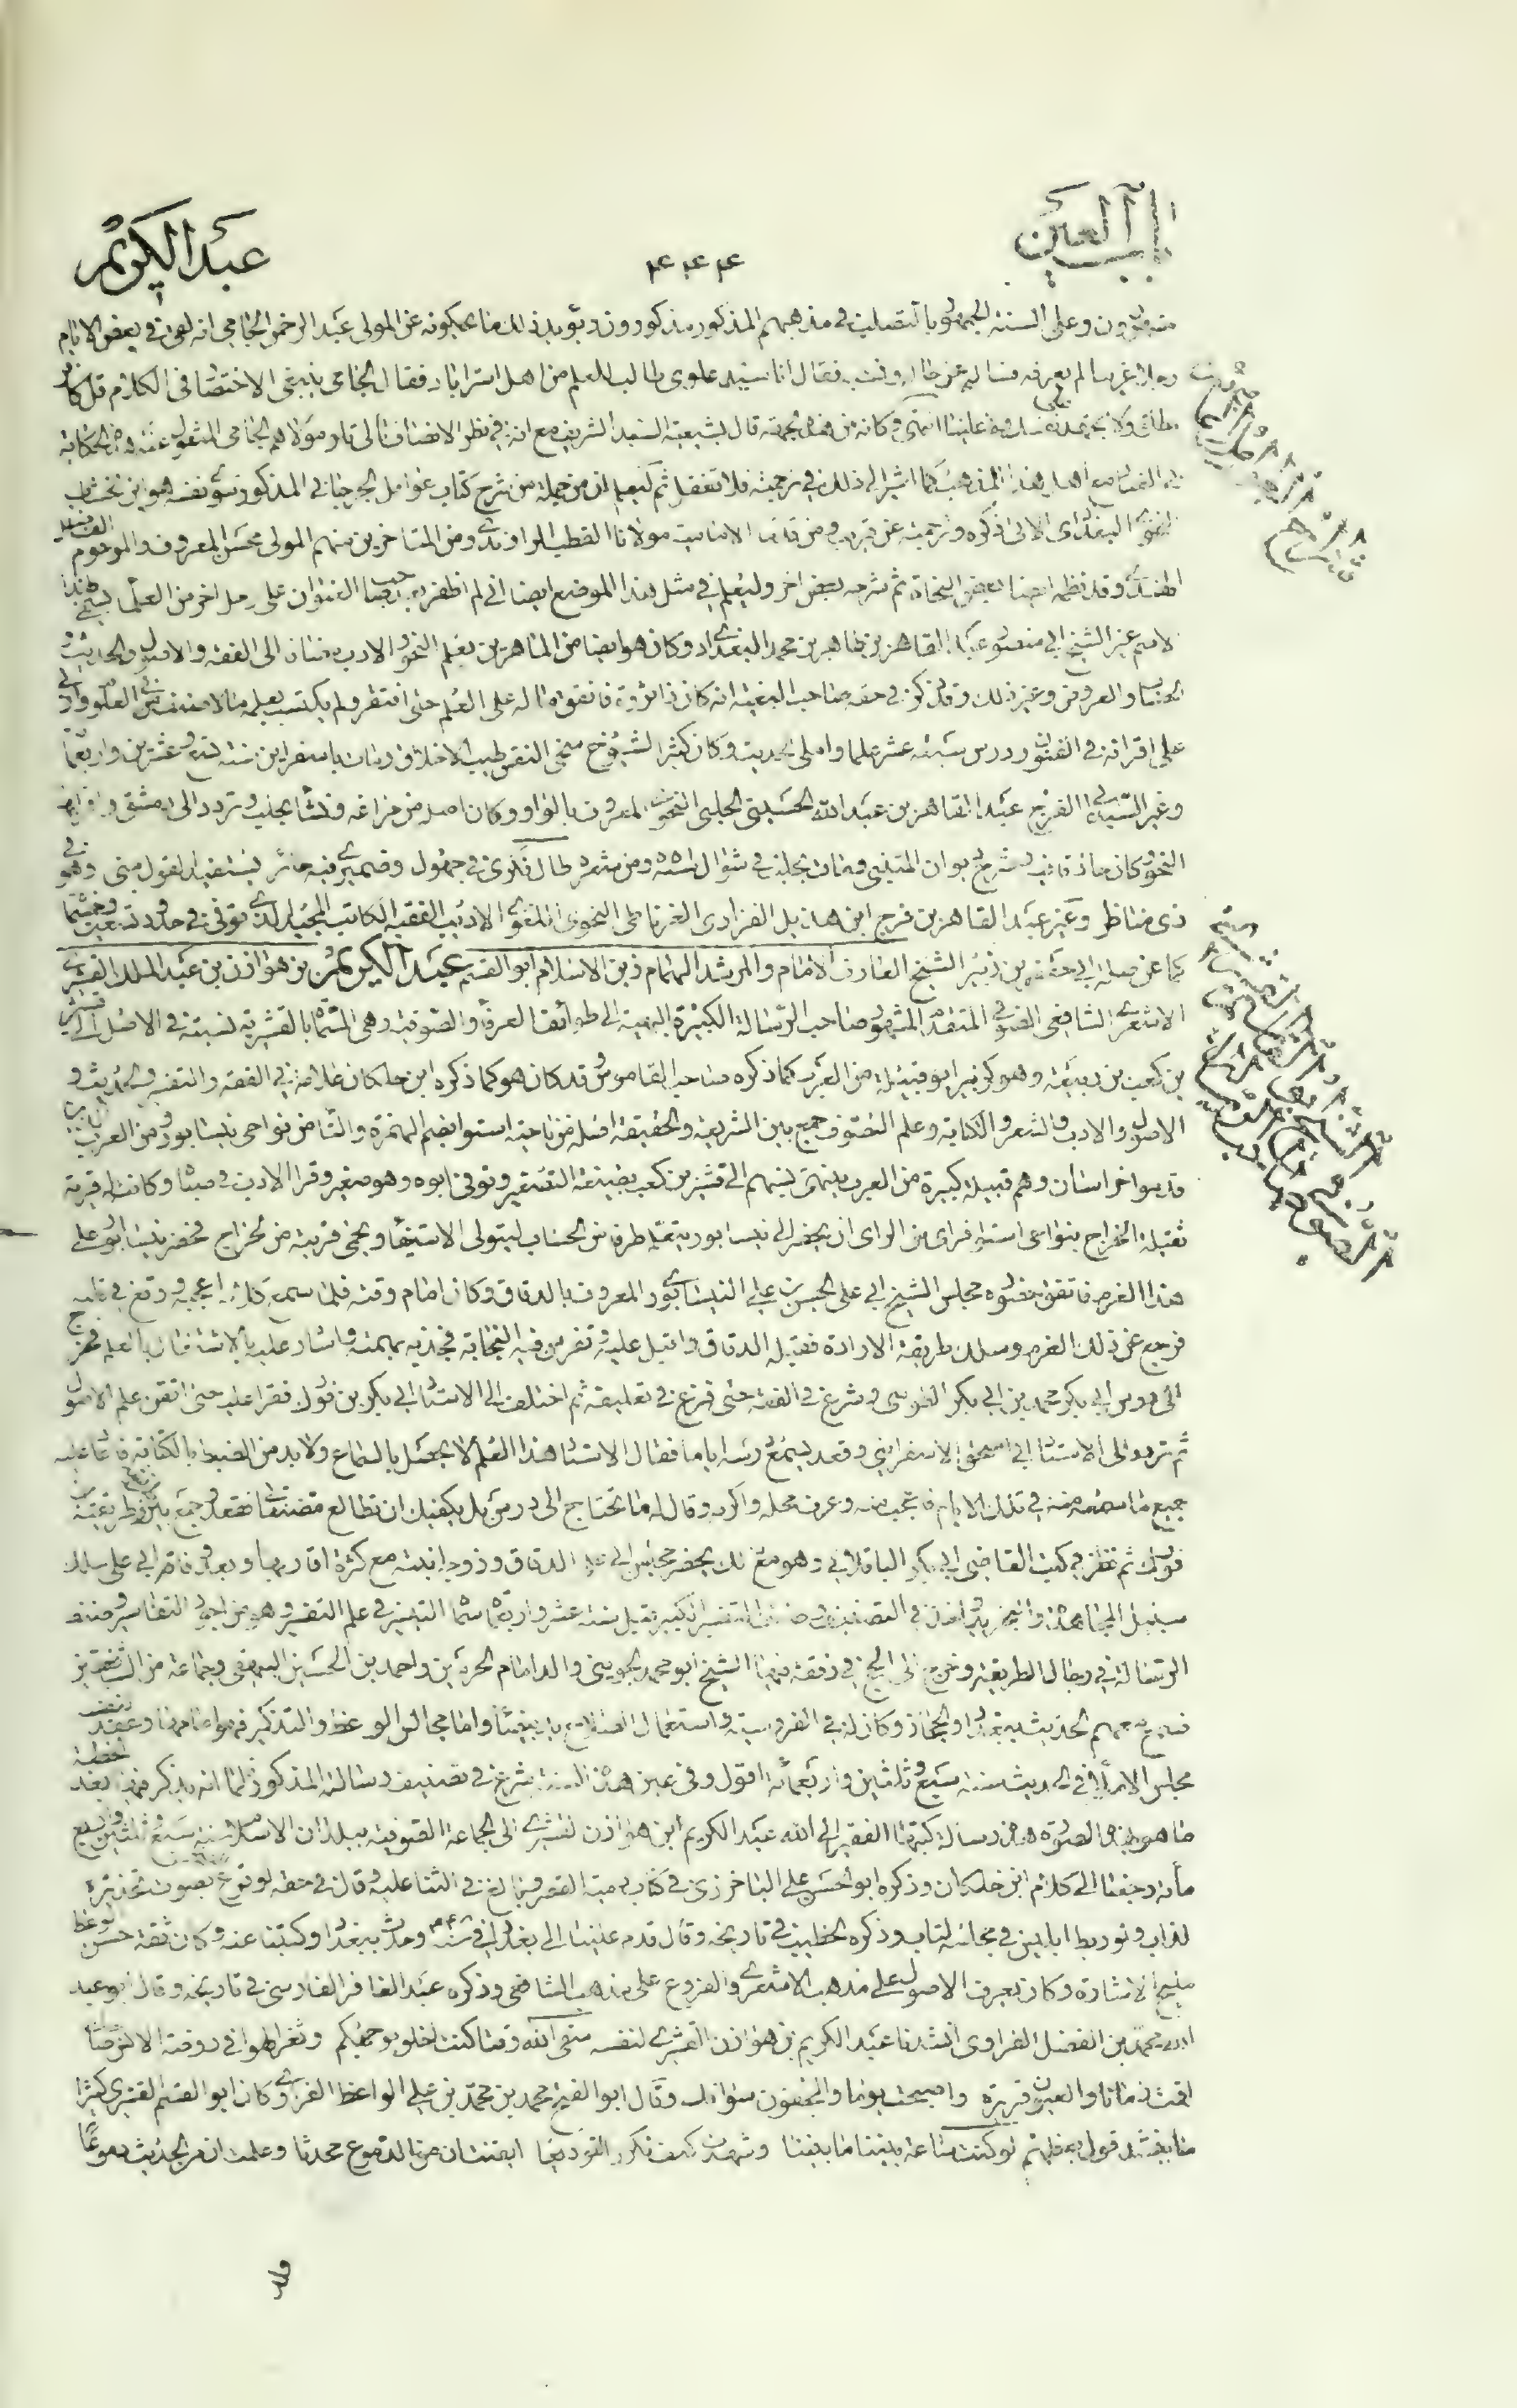 باب العين
٤٤٤
عبد الكريم
مشهورون وعلى السنة الجمهور بالتصليب في مذهبهم المذكور مذكورون ويؤيد ذلك ما يحكونه عن المولى عبد الرحمن الجامي انه لقى في بعض الايام
رجلا غريبا لم يعرفه فساله عن حاله ونسبه فقال انا سيد علوى طالب للعلم من اهل استراباد فقال الجامي ينبغي الاختصار في الكلام قل كافر
مطلق ولا تحتمله علينا انتهى وكانه من هذه الجهة قال بشيعية السيد الشريف مع انه في نظر الانصاف تالى تلو مولاهم الجامي المنقول عنه هذه الحكاية
في النصب مع اهل هذا المذهب كما اشير الى ذلك في ترجمته فلا تغفل ثم ليعلم ان من جملة من شرح كتاب عوامل الجرجاني المذكور سوى نفسه هو ابن خشاب
النحوى البغدادى الاتى ذكره وترجمته عن قريب ومن قدماء الامامية مولانا القطب الراوندى ومن المتاخرين منهم المولى محسن المعروف والمرحوم الفاضل
الهندى وقد نظمه ايضا بعض النحاة ثم شرحه بعض اخر وليعلم في مثل هذا الموضع ايضا انى لم اظفر بصاحب هذا العنوان على رجل اخر من العلماء يسمى بهذا
الاسم غير الشيخ ابى منصور عبد القاهر بن طاهر بن محمد البغدادى وكان هو ايضا من الماهرين بعلم النحو والادب مضافا الى الفقه والاصول والحديث و
الحساب والعروض وغير ذلك وقد ذكر في حقه صاحب البغية انه كان ذا ثروة فانفق ماله على العلم حتى افتقر ولم يكتسب بعلمه مالا صنف في العلوم واربى
على اقرانه في الفنون ودرس سبعة عشر علما واملى الحديث وكان كثير الشيوخ سخى النفس طيب الاخلاق ومات باسفراين سنة تسع وعشرين واربعمائة
وغير السيد ابى الفرج عبد القاهر بن عبد الله الحسينى الحلبى النحوى المعروف بالواوا وكان اصله من مراغه ونشا بحلب وتردد الى دمشق واقرا بها
النحو وكان حاذقا فيه شرح ديوان المتنبى ومات بحلب في شوال سنة ٥٥١ ومن شعره طال فكرى في جهول وضميرى فيه حائر يستفيد القول منى وهو في
ذى مناظر وغير عبد القاهر بن فرج ابن هذيل الفزارى الغرناطى النحوى اللغوى الاديب الفقيه الكاتب المجيد الذى توفى في حدود تسعين وخمسمائة
كما عن صلة ابى جعفر بن زبير الشيخ العارف الامام والمرشد الهمام زين الاسلام ابو القسم عبد الكريم بن هوازن بن عبد الملك القشيرى
الاشعرى الشافعى الصوفى المتقدم المشهور صاحب الرسالة الكبيرة البهية الى طوائف العرفاء والصوفية وهى المسماة بالقشيرية لنسبته في الاصل الى قشير
بن كعب بن ربيعة وهو كزبير ابو قبيلة من العرب كما ذكره صاحب القاموس قد كان هو كما ذكره ابن خلكان علامة في الفقه والتفسير والحديث و
الاصول والادب والشعر والكتابة وعلم التصوف جمع بين الشريعة والحقيقة اصله من ناحية استوا بضم الهمزة والتاء من نواحى نيسابور من العرب الذين
قدموا خراسان وهم قبيلة كبيرة من العرب ينتهى نسبهم الى قشير بن كعب بصيغة التصغير وتوفى ابوه وهو صغير وقرا الادب في صباه وكانت له قرية
ثقيلة الخراج بنواحى استوا فراى من الراى ان يحضر الى نيسابور يتعلم طرفا من الحساب ليتولى الاستيفاء ويحمى قريته من الخراج فحضر نيسابور على
هذا العزم فاتفق حضوره مجلس الشيخ ابى على الحسن بن على النيسابورى المعروف بالدقاق وكان امام وقته فلما سمع كلامه اعجبه ووقع في قلبه
فرجع عن ذلك العزم وسلك طريقة الارادة فقبله الدقاق واقبل عليه وتفرس فيه النجابة فجذبه بهمته واشار عليه بالاشتغال بالعلم فخرج
الى درس ابى بكر محمد بن ابى بكر الطوسى وشرع في الفقه حتى فرغ في تعليقه ثم اختلف الى الاستاد ابى بكر بن فورك فقرا عليه حتى اتقن علم الاصول
ثم تردد الى الاستاد ابى اسحق الاسفراينى وقعد يسمع درسه اياما فقال الاستاد هذا العلم لا يحصل بالسماع ولا بد من الضبط بالكتابة فاعاد عليه
جميع ما سمعه منه في تلك الايام فتعجب منه وعرف محله واكرمه وقال له ما تحتاج الى درس بل يكفيك ان تطالع مصنفاتى فقعد وجمع بين طريقته وطريقة ابن
فورك ثم نظر في كتب القاضى ابى بكر الباقلانى وهو مع ذلك يحضر مجلس ابى على الدقاق وزوجه ابنته مع كثرة اقاربها وبعد وفاة ابى على سلك
سبيل المجاهدة والتجريد واخذ في التصنيف فصنف التفسير الكبير قبل سنة عشر واربعمائة سماه التيسير في علم التفسير وهو من اجود التفاسير وصنف
الرسالة في رجال الطريقة وخرج الى الحج في رفقة فيها الشيخ ابو محمد الجوينى والد امام الحرمين واحمد بن الحسين البيهقى وجماعة من المشاهير
فسمع معهم الحديث ببغداد والحجاز وكان له في الفروسية واستعمال السلاح يد بيضاء واما مجالس الوعظ والتذكير فهو امامها وعقد لنفسه
مجلس الاملاء في الحديث سنة سبع وثلثين واربعمائة اقول وفى عين هذه السنة شرع في تصنيف رسالته المذكورة لما انه يذكر فيها بعد الخطبة
ما هو بهذه الصورة هذه رسالة كتبها الفقير الى الله عبد الكريم ابن هوازن القشيرى الى الجماعة الصوفية ببلدان الاسلام سنة سبع وثلثين واربع
مائة رجعنا الى كلام ابن خلكان وذكره ابو الحسن على الباخرزى في كتاب دمية القصر وبالغ في الثناء عليه وقال في حقه لو قرع الصخر بصوت تحذيره
لذاب ولو ربط ابليس في مجلسه لتاب وذكره الخطيب في تاريخه وقال قدم علينا الى بغداد في سنة ٤٤٨ وحدث ببغداد وكتبنا عنه وكان ثقة حسن الوعظ
مليح الاشارة وكان يعرف الاصول على مذهب الاشعرى والفروع على مذهب الشافعى وذكره عبد الغافر الفارسى في تاريخه وقال ابو عبد
الله محمد بن الفضل الفراوى انشدنا عبد الكريم بن هوازن القشيرى لنفسه سقى الله وقتا كنت اخلو بوجهكم وثغر الهوى في روضة الانس ضاحك
اقمت زمانا والعيون قريرة واصبحت يوما والجفون سوافك وقال ابو الفتح محمد بن محمد بن على الواعظ الفراوى وكان ابو القسم القشيرى كثيرا
ما ينشد قول بعضهم لو كنت ساعة بيننا ما بيننا وشهدت كيف نكرر التوديعا ايقنت ان من الدموع محدثا وعلمت ان من الحديث دموعا